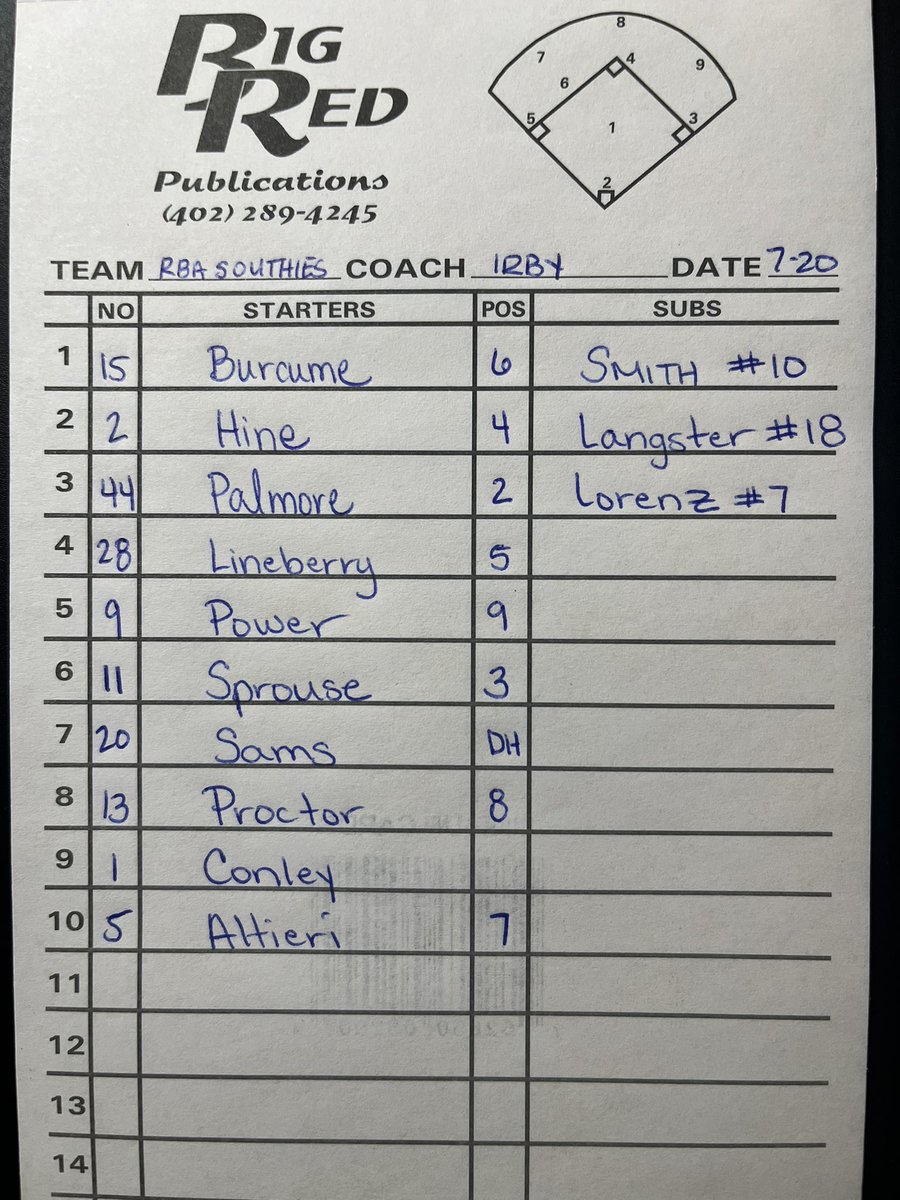 BIG
RED
Publications
(402) 289-4245
8
7 4 9
6
5 1 3
2
TEAM RBA SOUTHIES COACH IRBY DATE 7-20
NO STARTERS POS SUBS
1 15 Burcume 6 SMITH #10
2 2 Hine 4 Langster #18
3 44 Palmore 2 Lorenz #7
4 28 Lineberry 5
5 9 Power 9
6 11 Sprouse 3
7 20 Sams DH
8 13 Proctor 8
9 1 Conley
10 5 Altieri 7
11
12
13
14